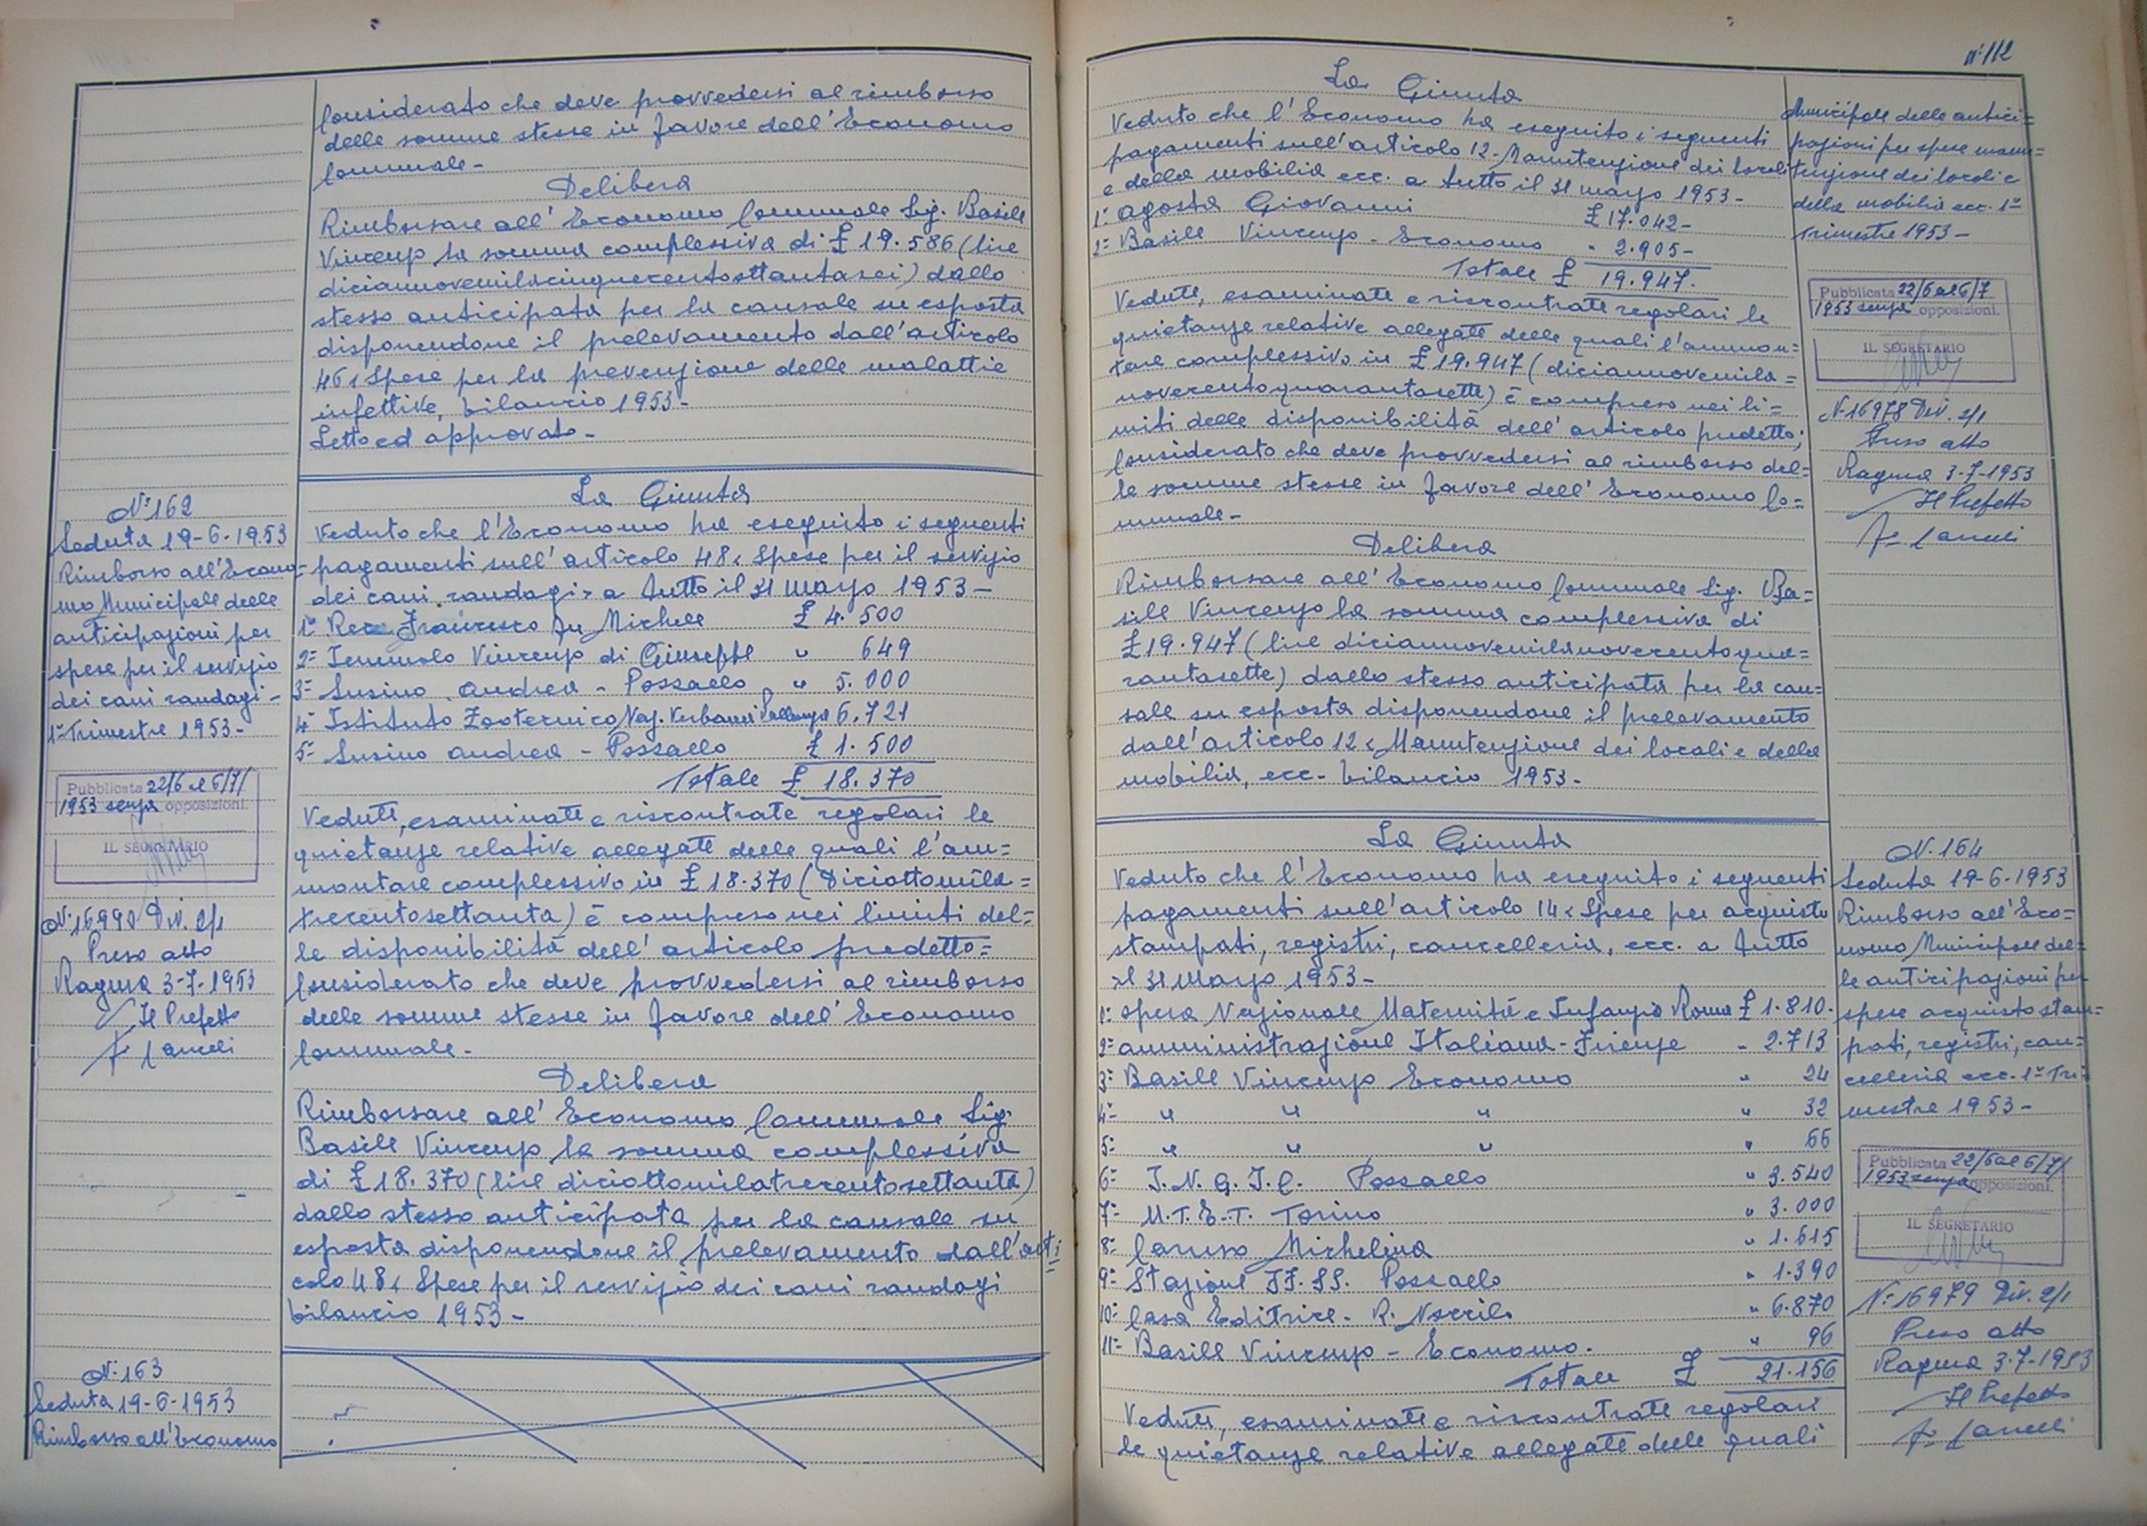 Considerato che deve provvedersi al rimborso
delle somme stesse in favore dell'Economo
Comunale -
Delibera
Rimborsare all'Economo Comunale Sig. Basile
Vincenzo la somma complessiva di £ 19.586 (lire
diciannovemilacinquecentoottantasei) dallo
stesso anticipata per la causale su esposta
disponendone il prelevamento dall'articolo
46 < Spese per la prevenzione delle malattie
infettive, bilancio 1953 -
Letto ed approvato -
N° 162
Seduta 19-6-1953
Rimborso all'Econo=
mo Municipale delle
anticipazioni per
spese per il servizio
dei cani randagi -
1° Trimestre 1953 -
Pubblicata 22/6 al 6/7/
1953 senza opposizioni.
IL SEGRETARIO
N° 16990 Div. 2/1
Preso atto
Ragusa 3-7-1953
Il Prefetto
La Giunta
Veduto che l'Economo ha eseguito i seguenti
pagamenti sull'articolo 48 < Spese per il servizio
dei cani randagi > a tutto il 31 marzo 1953 -
1° Francesco fu Michele £ 4.500
2° Vincenzo di Giuseppe " 649
3° Susino Andrea - Pozzallo " 5.000
4° Istituto Zootecnico 6.721
5° Susino Andrea - Pozzallo £ 1.500
Totale £ 18.370
Vedute, esaminate e riscontrate regolari le
quietanze relative allegate delle quali l'am=
montare complessivo in £ 18.370 (Diciottomila=
trecentosettanta) è compreso nei limiti del=
le disponibilità dell'articolo predetto=
Considerato che deve provvedersi al rimborso
delle somme stesse in favore dell'Economo
Comunale -
Delibera
Rimborsare all'Economo Comunale Sig.
Basile Vincenzo la somma complessiva
di £ 18.370 (lire diciottomilatrecentosettanta)
dallo stesso anticipata per la causale su
esposta disponendone il prelevamento dall'arti=
colo 48 < Spese per il servizio dei cani randagi
bilancio 1953 -
N° 163
Seduta 19-6-1953
Rimborso all'Economo
n° 112
La Giunta
Veduto che l'Economo ha eseguito i seguenti
pagamenti sull'articolo 12 - Manutenzione dei locali
e della mobilia ecc. a tutto il 31 marzo 1953 -
1° Agosta Giovanni £ 17.042 -
2° Basile Vincenzo - Economo " 2.905 -
Totale £ 19.947.
Vedute, esaminate e riscontrate regolari le
quietanze relative allegate delle quali l'ammon=
tare complessivo in £ 19.947 (diciannovemila=
novecentoquarantasette) è compreso nei li=
miti delle disponibilità dell'articolo predetto;
Considerato che deve provvedersi al rimborso del=
le somme stesse in favore dell'Economo Co=
munale -
Delibera
Rimborsare all'Economo Comunale Sig. Ba=
sile Vincenzo la somma complessiva di
£ 19.947 (lire diciannovemilanovecentoqua=
rantasette) dallo stesso anticipata per la cau=
sale su esposta disponendone il prelevamento
dall'articolo 12 < Manutenzione dei locali e della
mobilia, ecc - bilancio 1953 -
Municipale delle antici=
pazioni per spese manu=
tenzione dei locali e
della mobilia ecc. 1°
Trimestre 1953 -
Pubblicata 22/6 al 6/7
1953 senza opposizioni.
IL SEGRETARIO
N° 16978 Div. 2/1
Preso atto
Ragusa 3-7-1953
Il Prefetto
La Giunta
Veduto che l'Economo ha eseguito i seguenti
pagamenti sull'articolo 14 < Spese per acquisto
stampati, registri, cancelleria, ecc. a tutto
il 31 Marzo 1953 -
1° Opera Nazionale Maternità e Infanzia Roma £ 1.810.
2° Amministrazione Italiana - Firenze " 2.713
3° Basile Vincenzo Economo " 24
4° " " " " 32
5° " " " " 66
6° I.N.G.I.C. Pozzallo " 3.540
7° U.T.E.T. Torino " 3.000
8° Caruso Michelina " 1.615
9° Stazione FF.SS. Pozzallo " 1.390
10° Casa Editrice - R. Noccioli " 6.870
11° Basile Vincenzo - Economo. " 96
Totale £ 21.156
Vedute, esaminate e riscontrate regolari
le quietanze relative allegate delle quali
N. 164
Seduta 19-6-1953
Rimborso all'Eco=
nomo Municipale del=
le anticipazioni per
spese acquisto stam=
pati, registri, can=
celleria ecc. 1° Tri=
mestre 1953 -
Pubblicata 22/6 al 6/7/
1953 senza opposizioni.
IL SEGRETARIO
N° 16979 Div. 2/1
Preso atto
Ragusa 3-7-1953
Il Prefetto